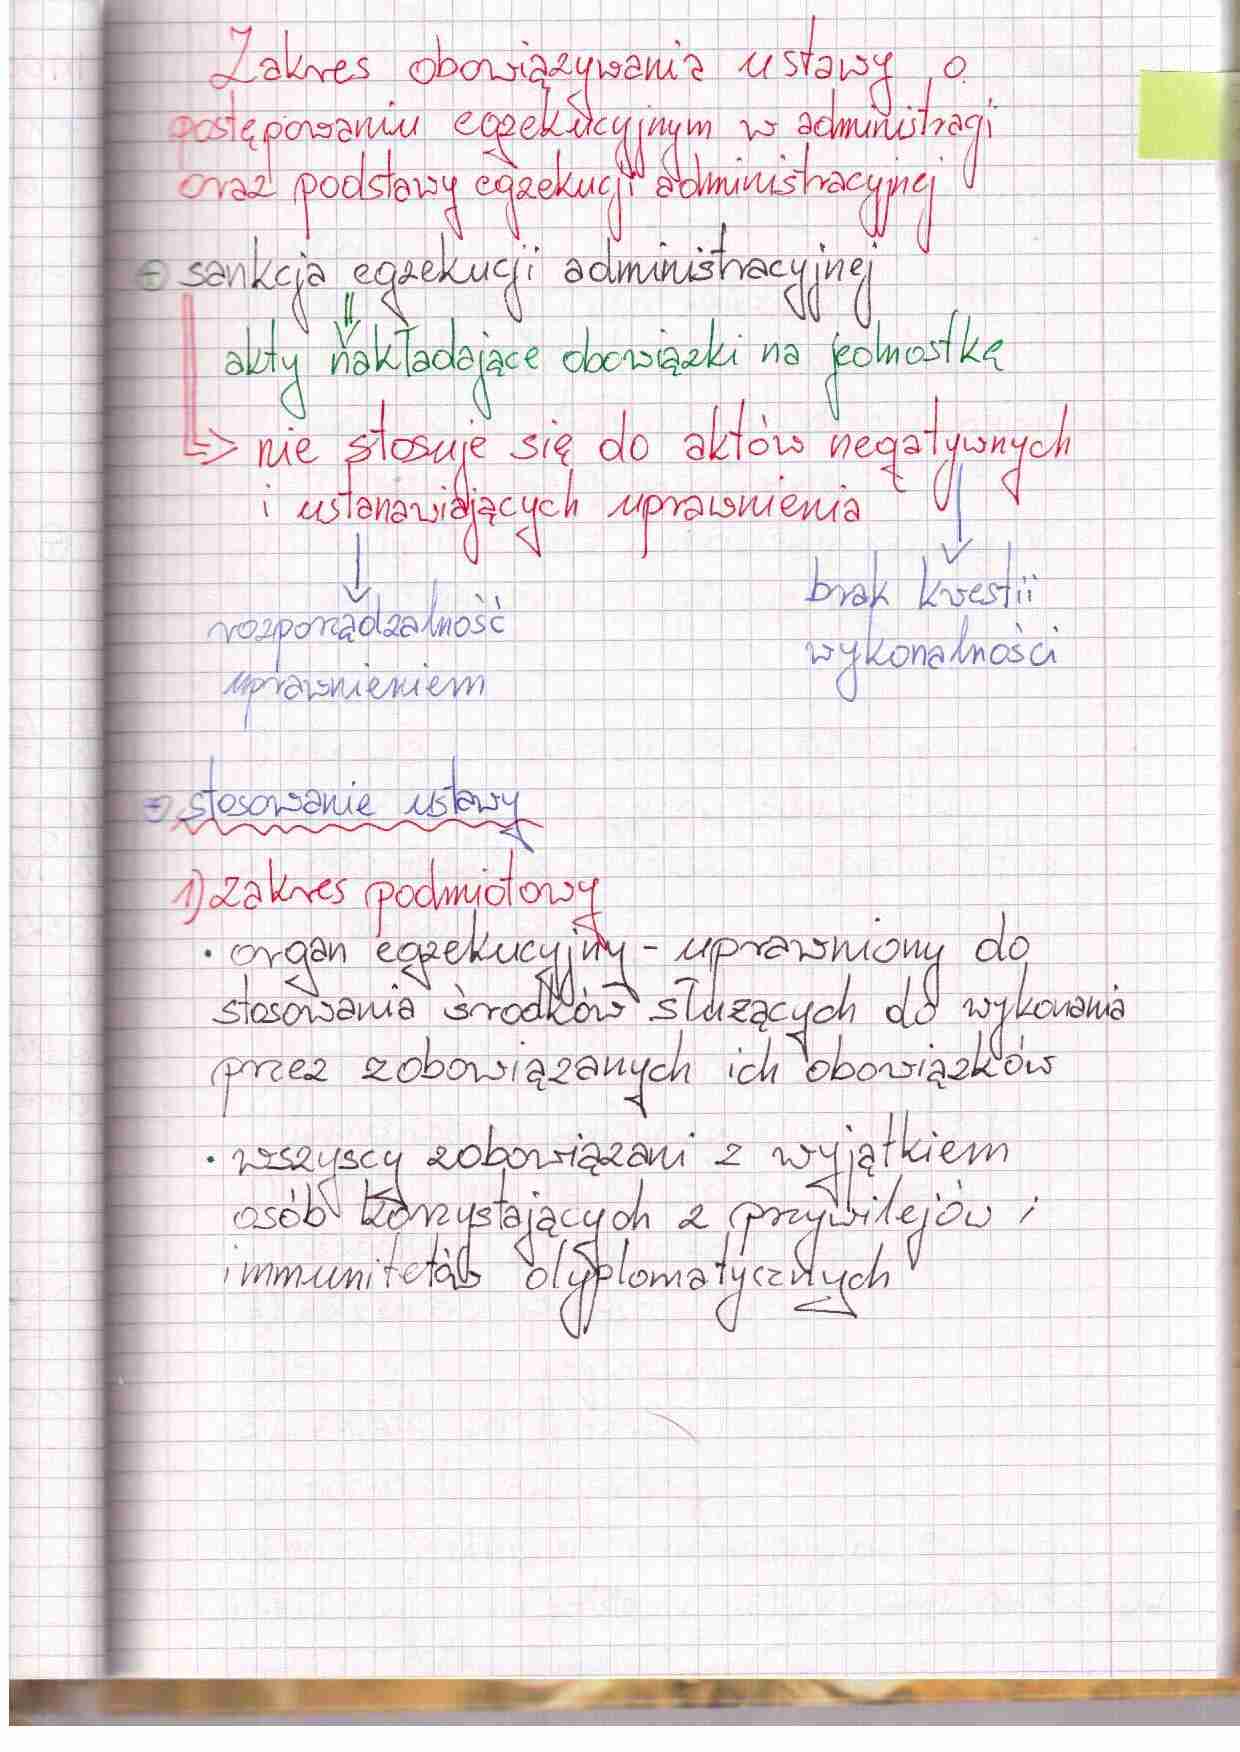 Zakres obowiązywania ustawy o
postępowaniu egzekucyjnym w administracji
oraz podstawy egzekucji administracyjnej
sankcja egzekucji administracyjnej
akty nakładające obowiązki na jednostkę
=> nie stosuje się do aktów negatywnych
i ustanawiających uprawnienia
brak kwestii
wykonalności
rozporządzalność
uprawnieniem
stosowanie ustawy
1) zakres podmiotowy
• organ egzekucyjny - uprawniony do
stosowania środków służących do wykonania
przez zobowiązanych ich obowiązków
• wszyscy zobowiązani z wyjątkiem
osób korzystających z przywilejów i
immunitetów dyplomatycznych